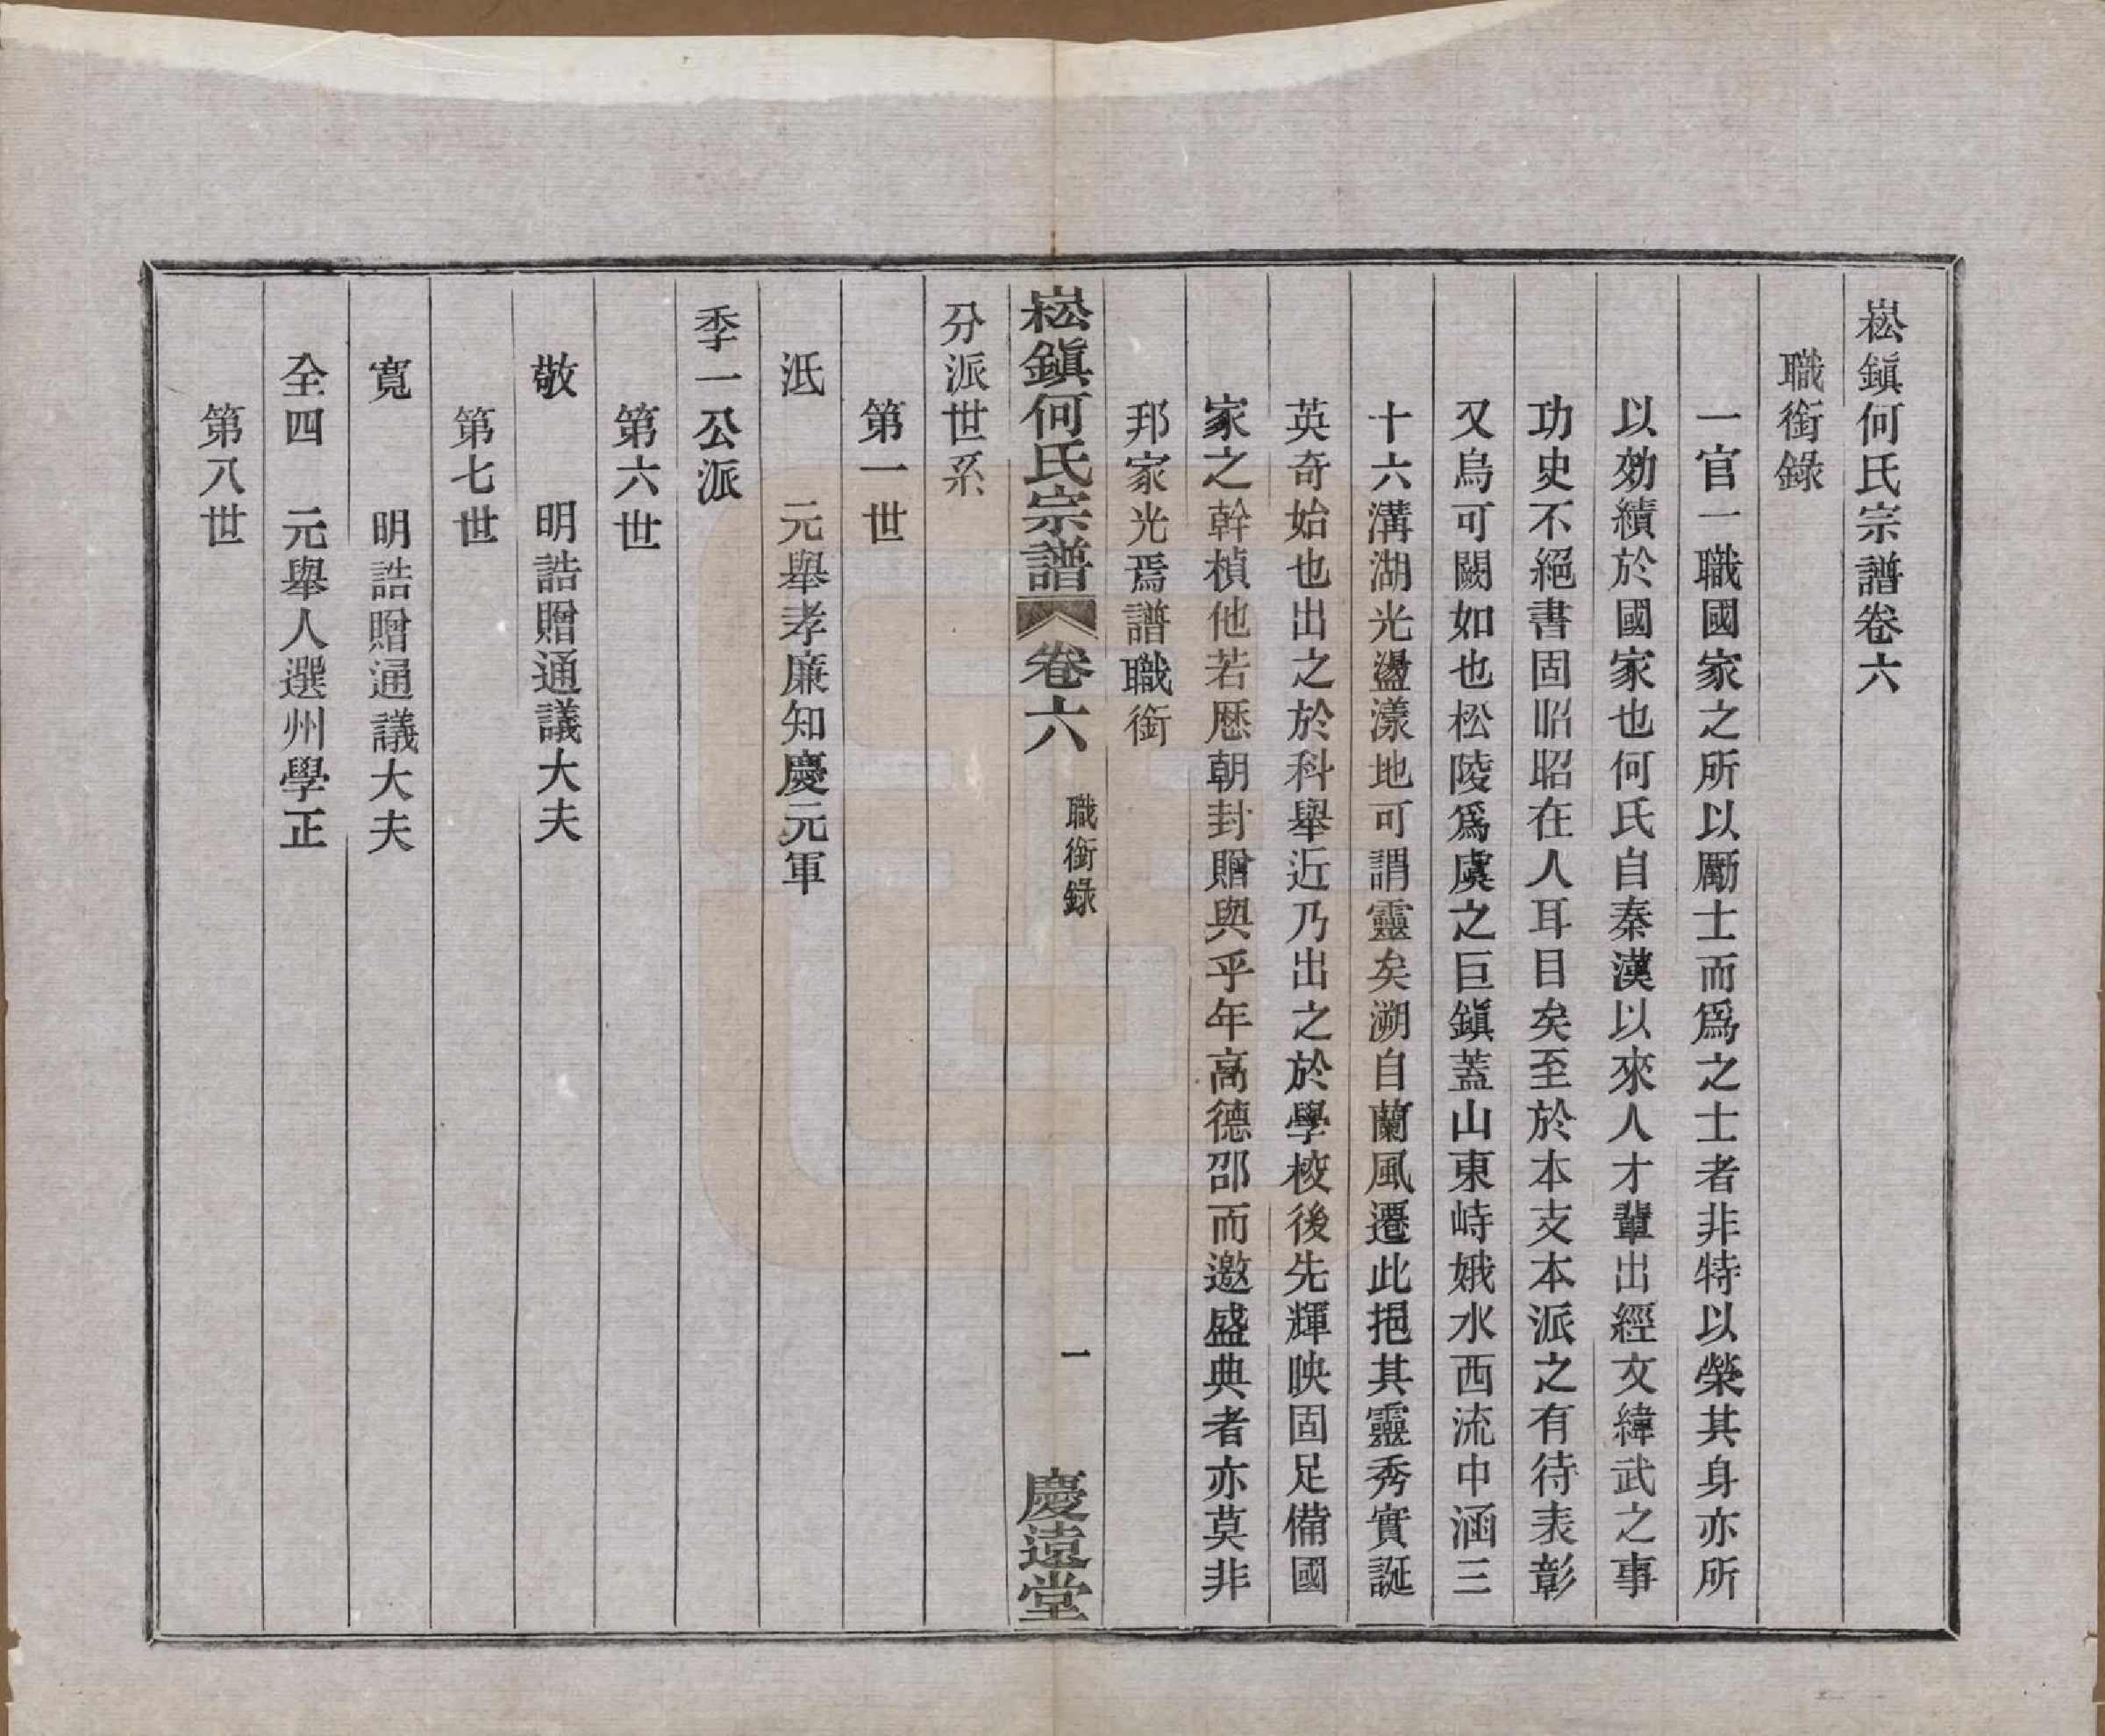 崧鎭何氏宗譜卷六
職銜錄
一官一職國家之所以勵士而爲之士者非特以榮其身亦所
以効績於國家也何氏自秦漢以來人才輩出經文緯武之事
功史不絕書固昭昭在人耳目矣至於本支本派之有待表彰
又烏可闕如也松陵爲虞之巨鎭蓋山東峙娥水西流中涵三
十六溝湖光盪漾地可謂靈矣溯自蘭風遷此挹其靈秀實誕
英奇始也出之於科舉近乃出之於學校後先輝映固足備國
家之幹楨他若歷朝封贈與乎年高德邵而邀盛典者亦莫非
邦家光焉譜職銜
崧鎭何氏宗譜 卷六 職銜錄 一 慶遠堂
分派世系
第一世
泜 元舉孝廉知慶元軍
季一公派
第六世
敬 明誥贈通議大夫
第七世
寬 明誥贈通議大夫
全四 元舉人選州學正
第八世